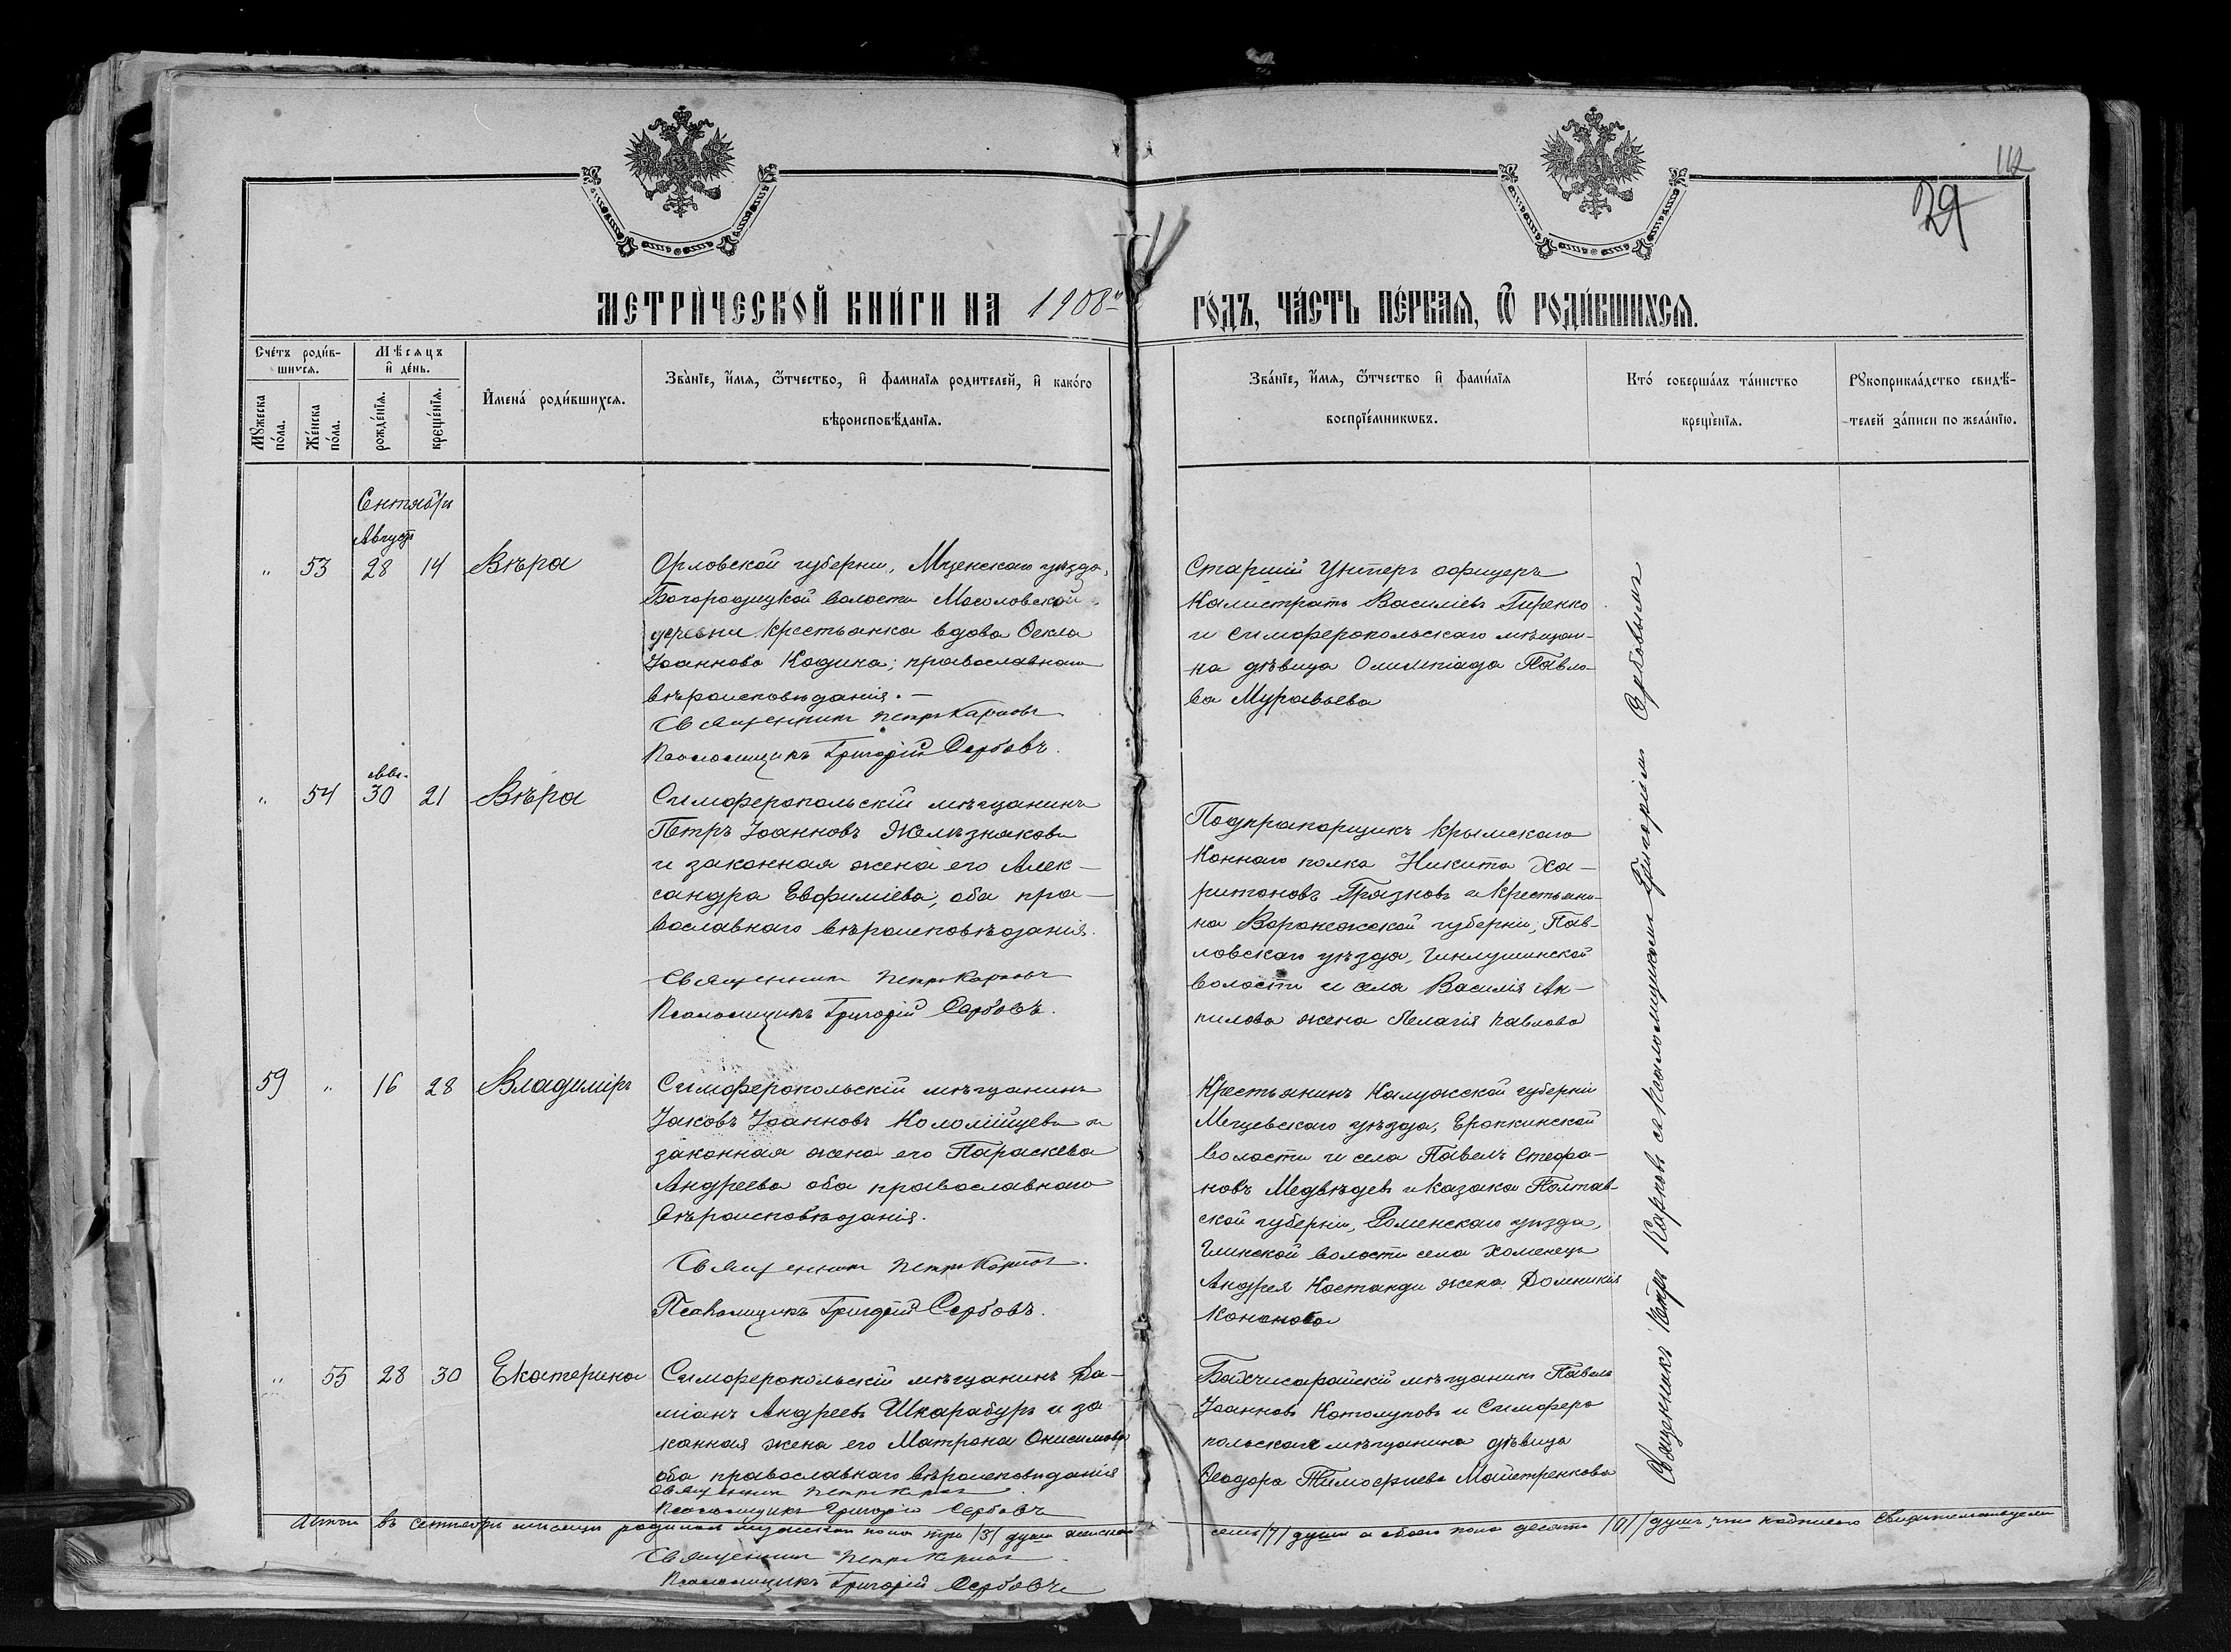 112
29
МЕТРИ́ЧЕСКОЙ КНИ́ГИ НА 1908й
ГО́ДЪ, ЧА́СТЬ ПЕ́РВАѦ, Ѿ РОДИ́ВШИХСѦ.
Сче́тъ роди́в-
шихсѧ.
Мѣ́сѧцъ
и҆ де́нь.
Мꙋ́жеска
по́ла.
Же́нска
по́ла.
рожде́нїѧ.
креще́нїѧ.
И҆мена̀ роди́вшихсѧ.
Зва́нїе, и҆́мѧ, ѻ҆́тчество, и҆ фами́лїѧ роди́телей, и҆ како́го
вѣроисповѣ́данїѧ.
Зва́нїе, и҆́мѧ, ѻ҆́тчество и҆ фами́лїѧ
воспрїе́мникѡвъ.
Кто̀ соверша́лъ та́инство
креще́нїѧ.
Рꙋкоприкла́дство свидѣ́-
телей за́писи по жела́нїю.
Сентябрь
Августъ
„ 53 28 14 Вѣра
Орловской губерніи, Мценскаго уѣзда,
Богородицкой волости Мосоловской
деревни крестьянка вдова Ѳекла
Іоаннова Кодина; православнаго
вѣроисповѣданія. —
Священникъ Петръ Карповъ
Псаломщикъ Григорій Сербовъ.
Старшій Унтеръ офицеръ
Калистратъ Василіевъ Гиренко
и симферопольскаго мѣщани-
на дѣвица Олимпіада Павло-
ва Муравьева
Авг.
„ 54 30 21 Вѣра
Симферопольскій мѣщанинъ
Петръ Іоанновъ Желѣзнаковъ
и законная жена его Алек-
сандра Евфиміева, оба пра-
вославнаго вѣроисповѣданія.
Священникъ Петръ Карповъ
Псаломщикъ Григорій Сербовъ.
Подпрапорщикъ Крымскаго
Коннаго полка Никита Ха-
ритоновъ Грязновъ и крестьяни-
на Воронежской губерніи, Пав-
ловскаго уѣзда,
волости и села Василія Ан-
пилова жена Пелагія Павлова
59 „ 16 28 Владиміръ
Симферопольскій мѣщанинъ
Іаковъ Іоанновъ Коломійцевъ и
законная жена его Параскева
Андреева оба православнаго
вѣроисповѣданія.
Священникъ Петръ Карповъ.
Псаломщикъ Григорій Сербовъ.
Крестьянинъ Калужской губерніи
Мещевскаго уѣзда, Еропкинской
волости и села Павелъ Стефа-
новъ Медвѣдевъ и казака Полтав-
ской губерніи, Роменскаго уѣзда,
Глинской волости села Хоменецъ
Андрея Костанди жена Домникія
Кононова
„ 55 28 30 Екатерина
Симферопольскій мѣщанинъ Да-
міанъ Андреевъ Шкарабуръ и за-
конная жена его Матрона Онисимова
оба православнаго вѣроисповѣданія
Священникъ Петръ Карповъ
Псаломщикъ Григорій Сербовъ
Бахчисарайскій мѣщанинъ Павелъ
Іоанновъ Котолуповъ и Симферо
польскаго мѣщанина дѣвица
Ѳеодора Тимофеева Майстренкова
Священникъ Петръ Карповъ съ псаломщикомъ Григоріемъ Сербовымъ
Итого въ сентябрѣ мѣсяцѣ родилось мужескаго пола три /3/ души женскаго
семь /7/ душъ а обоего пола десять /10/ душъ, что подписью свидѣтельствуемъ
Священникъ Петръ Карповъ
Псаломщикъ Григорій Сербовъ